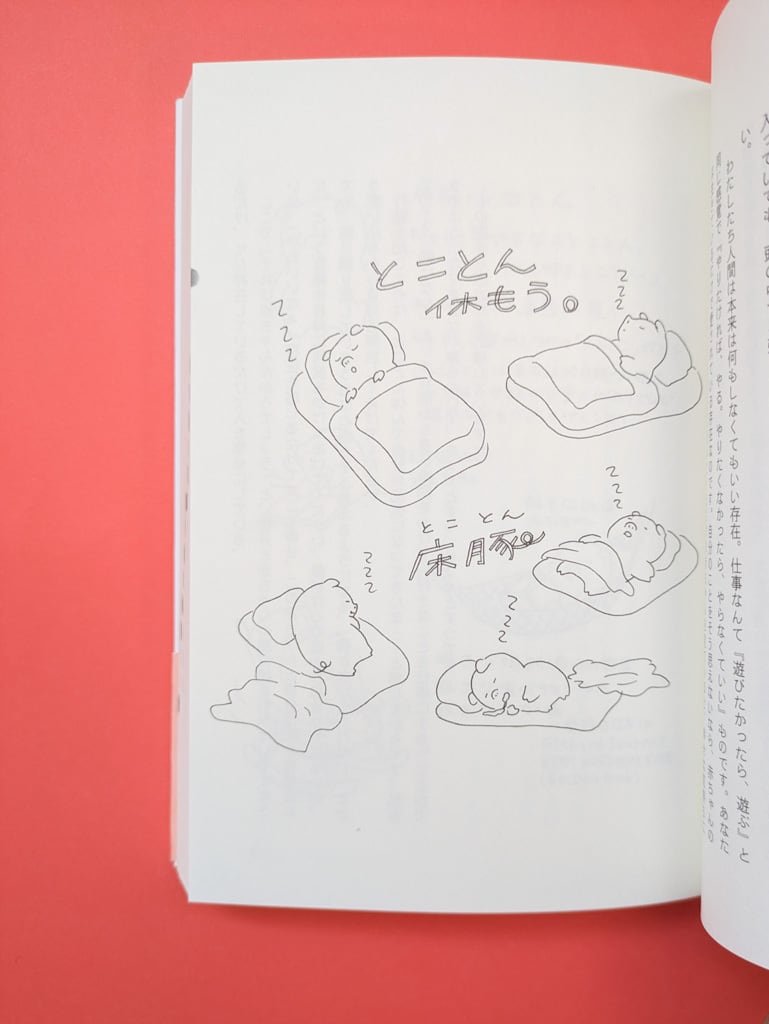 い。
わたしたち人間は本来は何もしなくてもいい存在。仕事なんて『遊びたかったら、遊ぶ』と
同じ感覚で、『やりたければ、やる。やりたくなかったら、やらなくていい』ものです。あなた
とことん
休もう。
zzz
zzz
とことん
床豚。
zzz
zzz
zzz